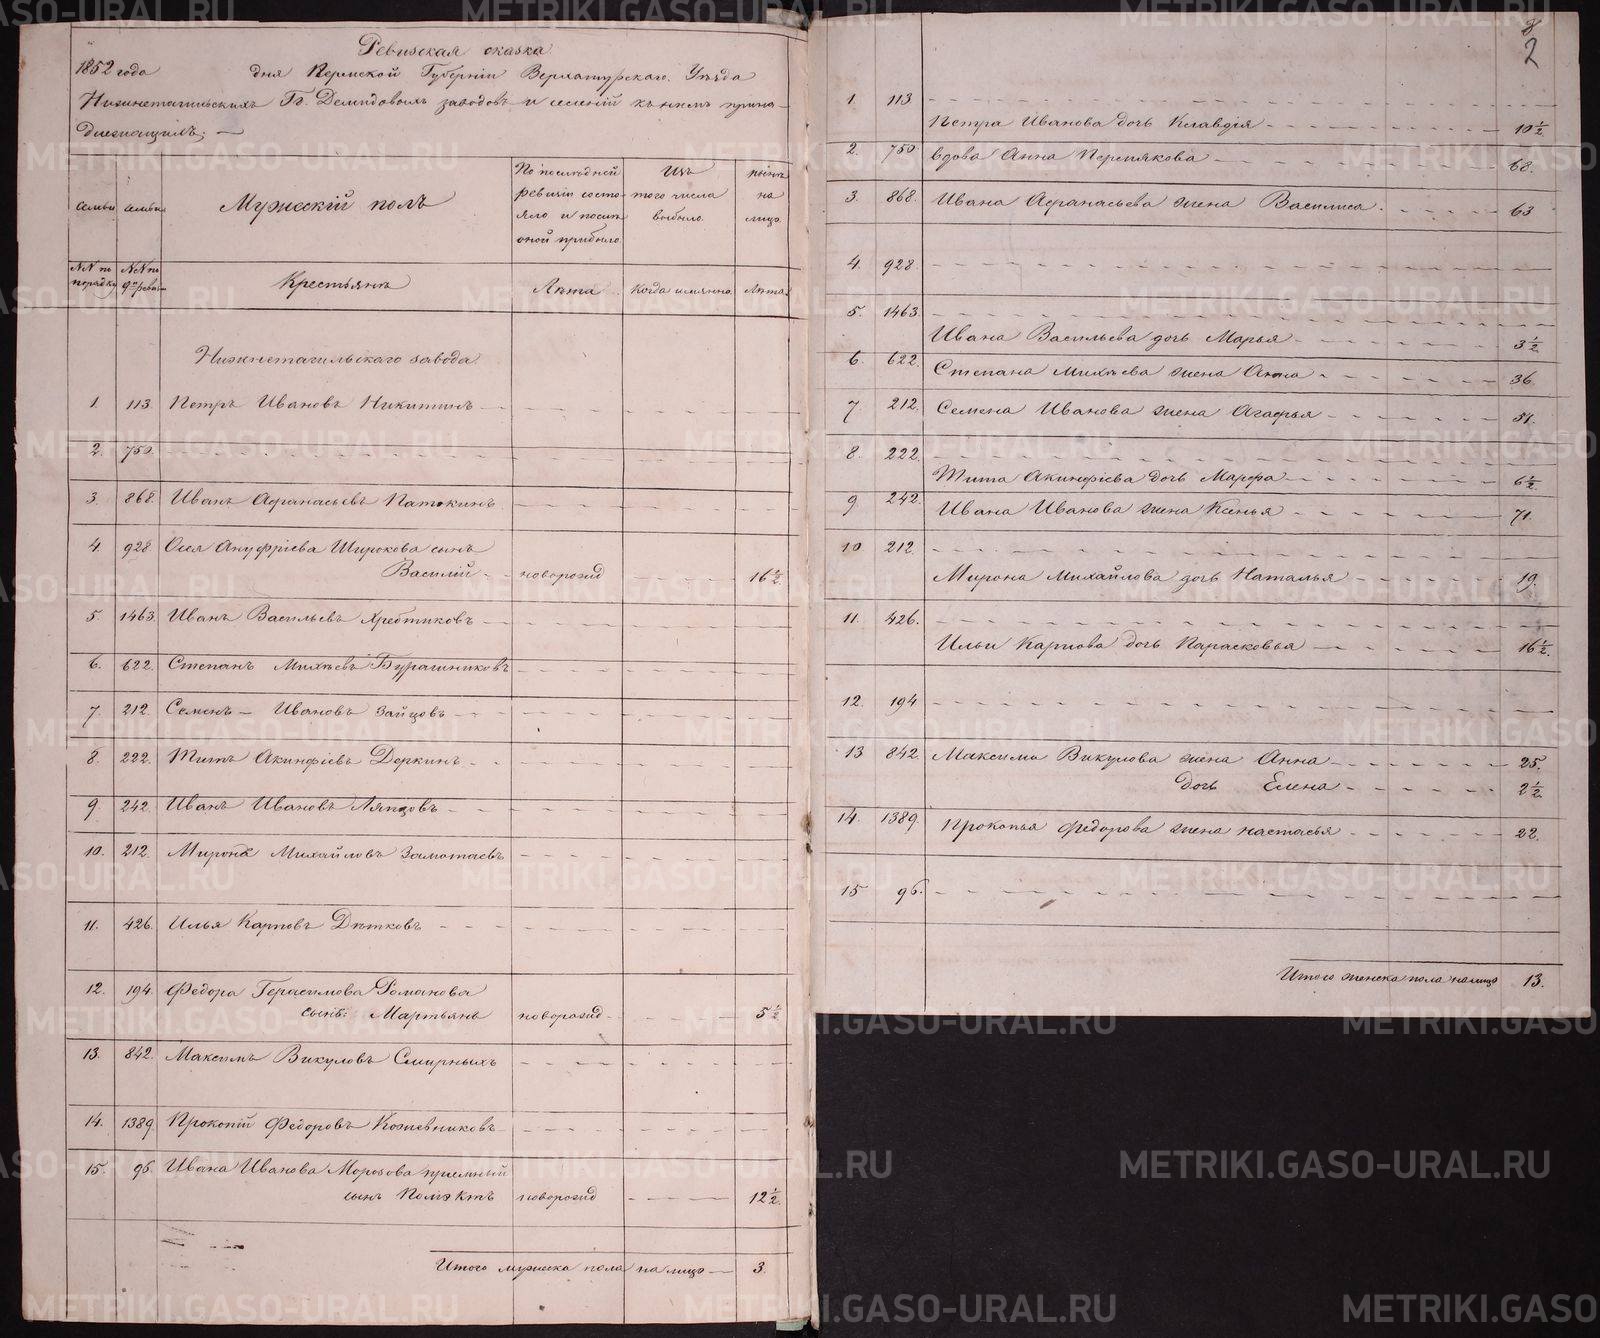 Ревизская сказка
1852 года дня Пермской Губернiи Верхотурскаго Уѣзда
Нижнетагильскихъ Гг. Демидовыхъ заводовъ и селенiй къ нимъ прина-
длежащихъ; —
Семьи Семьи Мужескiй полъ По последней ревизiи состо-яло и после оной прибыло Изъ того числа выбыло нынѣ на лицо
NN по порядку NN по 9й ревиз Крестьянъ Лѣта Когда имянно Лѣта
Нижнетагильскаго завода
1. 113. Петръ Ивановъ Никитинъ
2. 750.
3 868. Иванъ Афанасьевъ Патокинъ
4. 928. Осея Ануфрiева Широкова сынъ
Василiй новорожд 16 ½
5. 1463. Иванъ Васильевъ Хребтиковъ
6. 622. Степанъ Михѣевъ Бурашниковъ
7. 212. Семенъ — Ивановъ Зайцовъ
8. 222. Титъ Акинфiевъ Деркинъ
9 242. Иванъ Ивановъ Ляпцовъ
10. 212. Миронъ Михайловъ Замотаевъ
11. 426. Илья Карповъ Дѣтковъ
12. 194. Федора Герасимова Романова
сынъ: Мартьянъ новорожд 5 ½
13. 842. Максимъ Викуловъ Смирныхъ
14. 1389. Прокопiй Федоровъ Кожевниковъ
15. 96. Ивана Иванова Морозова прiемный
сынъ Полиэктъ новорожд 12 ½
Итого мужеска пола на лицо — 3.
2
1. 113
Петра Иванова дочь Клавдiя 10 ½
2. 750 вдова Анна Пермякова 68.
3. 868. Ивана Афанасьева жена Василиса 63
4. 928.
5. 1463.
Ивана Васильева дочь Марья 3 ½
6. 622. Степана Михѣева жена Анна 36
7 212. Семена Иванова жена Агафья 51.
8. 222.
Тита Акинфiева дочь Марфа 6 ½
9 242. Ивана Иванова жена Ксенья 71.
10 212.
Мирона Михайлова дочь Наталья 19.
11. 426.
Ильи Карпова дочь Парасковья 16 ½
12. 194
13 842. Максима Викулова жена Анна 25.
дочь Елена 2 ½
14. 1389. Прокопья Федорова жена Настасья 22.
15 96.
Итого женска пола налицо 13.
METRIKI.GASO-URAL.RU